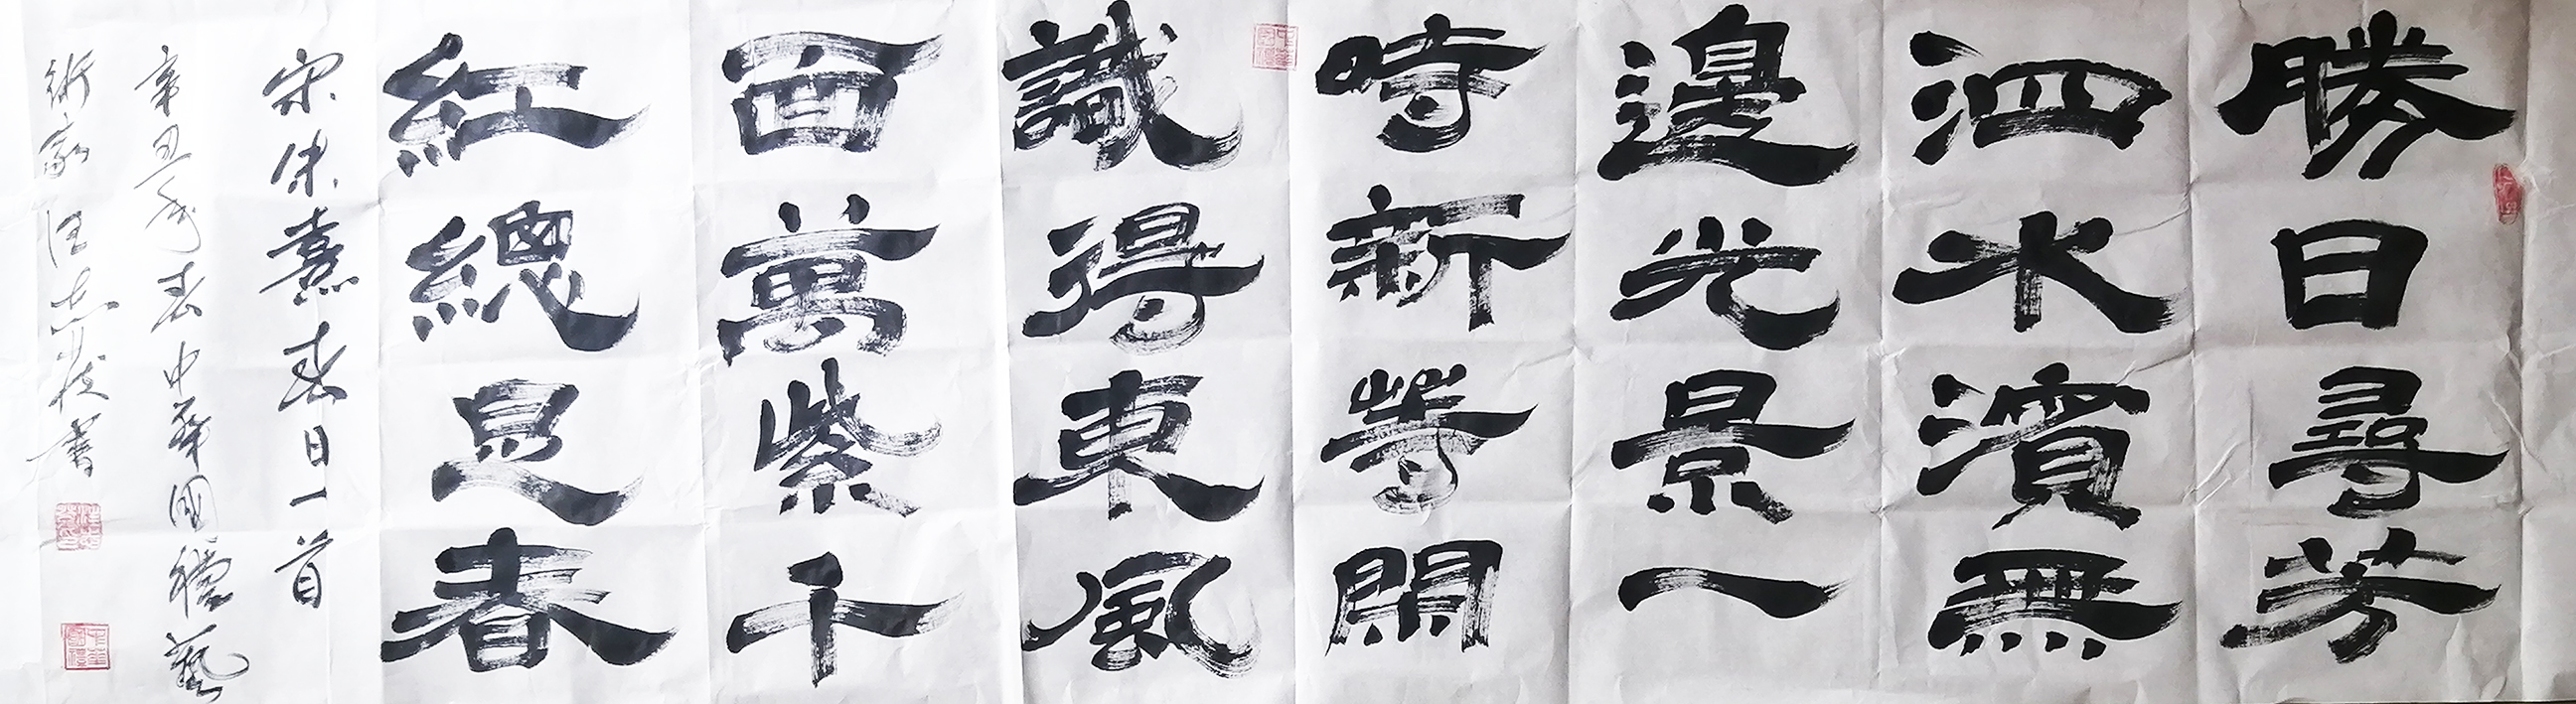 勝日尋芳
泗水濱無
邊光景一
時新等閑
識得東風
面萬紫千
紅總是春
宋朱熹春日一首
辛丑年春中華國禮藝
術家汪志書